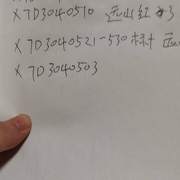 X7D3040510 远山红 3
X7D3040521-530 标
X7D3040503